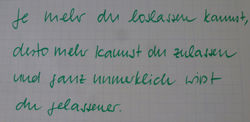 Je mehr du loslassen kannst,
desto mehr kannst du zulassen
und ganz unmerklich wirst
du gelassener.